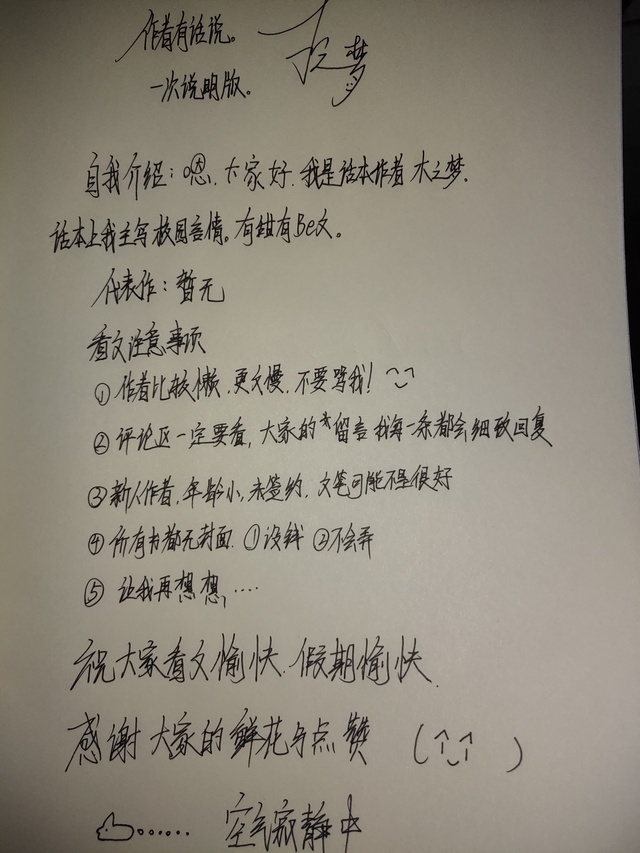 作者有话说。
木之梦
一次说明版。
自我介绍：嗯，大家好，我是话本作者 木之梦.
话本上我主写校园言情。有甜有Be文。
代表作：暂无
看文注意事项
① 作者比较懒，更文慢，不要骂我！
② 评论区一定要看，大家的留言 我每一条都会细致回复
③ 新人作者，年龄小，未签约，文笔可能不是很好
④ 所有书都无封面 ①没钱 ②不会弄
⑤ 让我再想想，....
祝大家看文愉快，假期愉快
感谢大家的鲜花与点赞 ( )
...... 空气寂静中